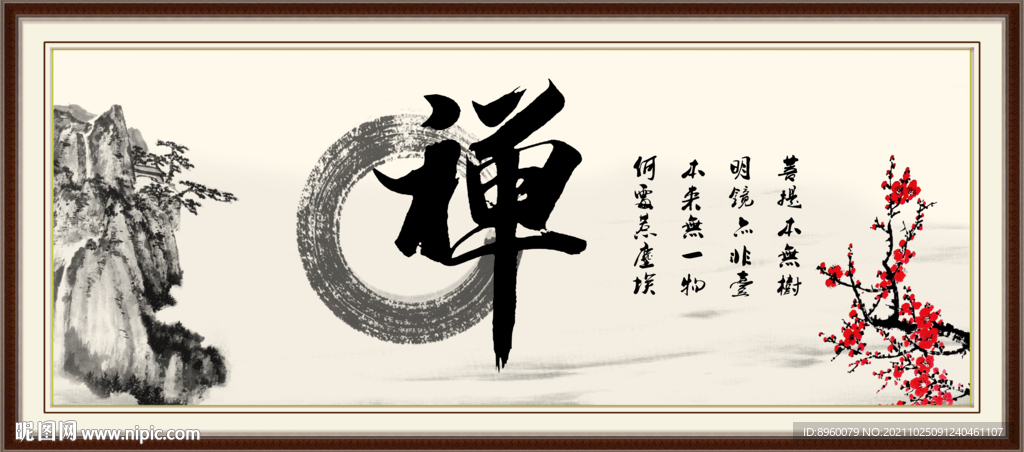 禅
菩提本無樹
明镜亦非臺
本来無一物
何需惹塵埃
昵图网 www.nipic.com
ID:8960079 NO:20211025091240461107